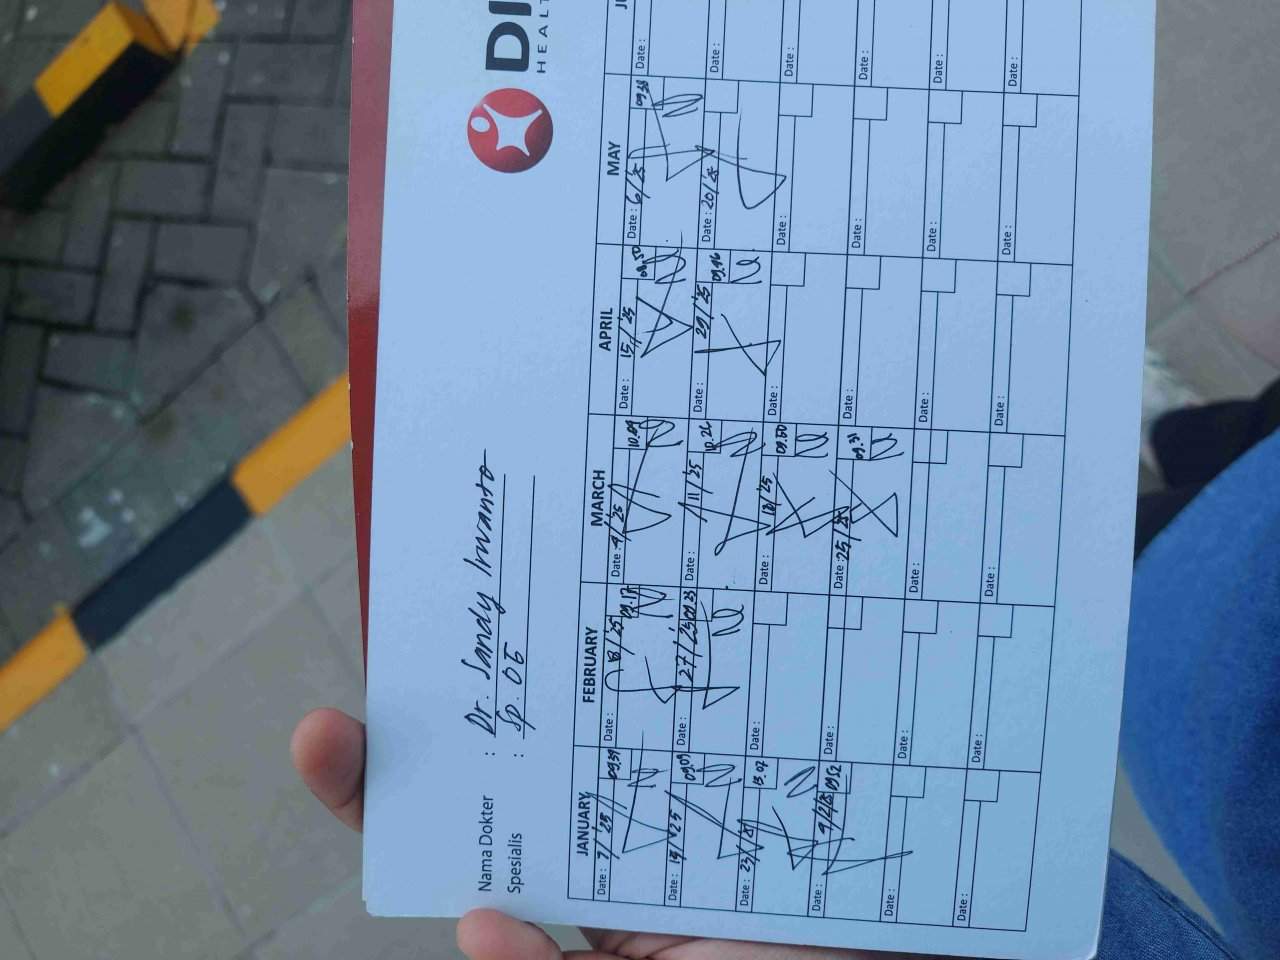 DI
HEALT
Nama Dokter : Dr. Sandy Irwanto
Spesialis : Sp. OG
JANUARY FEBRUARY MARCH APRIL MAY
Date : 7/'25 09.39 Date : 18/'25 09.17 Date : 4/'25 10.09 Date : 15/'25 09.50 Date : 6/'25 09.38 Date :
Date : 15/'25 09.09 Date : 27/'25 09.23 Date : 11/'25 10.26 Date : 29/'25 09.46 Date : 20/'25 Date :
Date : 23/ 13.07 Date : Date : 18/'25 09.50 Date : Date : Date :
Date : 4/2/25 09.52 Date : Date : 25/ 09.31 Date : Date : Date :
Date : Date : Date : Date : Date : Date :
Date : Date : Date : Date : Date : Date :